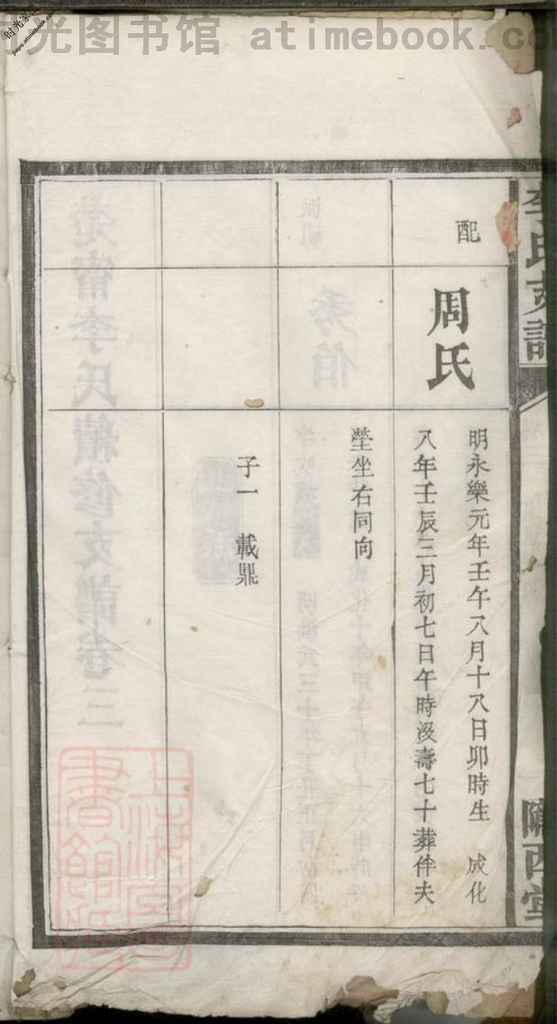 光图书馆 atimebook.co
李氏支譜
隴西堂
配
周氏
明永樂元年壬午八月十八日卯時生 成化
八年壬辰三月初七日午時歿壽七十葬伴夫
塋坐右同向
子一 載鼎